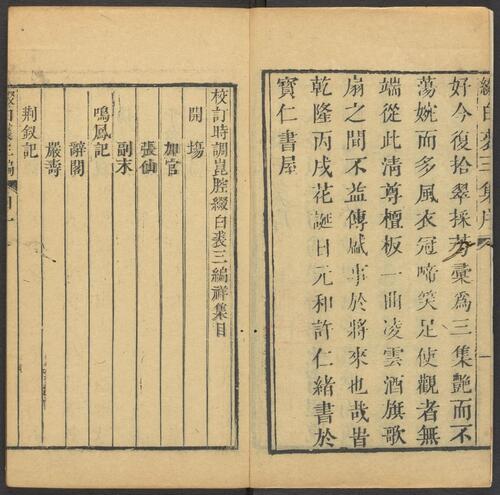 綴白裘三集序
好今復拾翠採芳彙為三集艷而不
蕩婉而多風衣冠啼笑足使觀者無
端從此清尊檀板一曲凌雲酒旗歌
扇之間不益傳盛事於將來也哉旹
乾隆丙戌花誕日元和許仁緒書於
寳仁書屋
校訂時調崑腔綴白裘三編祥集目
開塲
加官
張仙
副末
鳴鳳記
辭閣
嚴壽
荆釵記
綴白裘三編